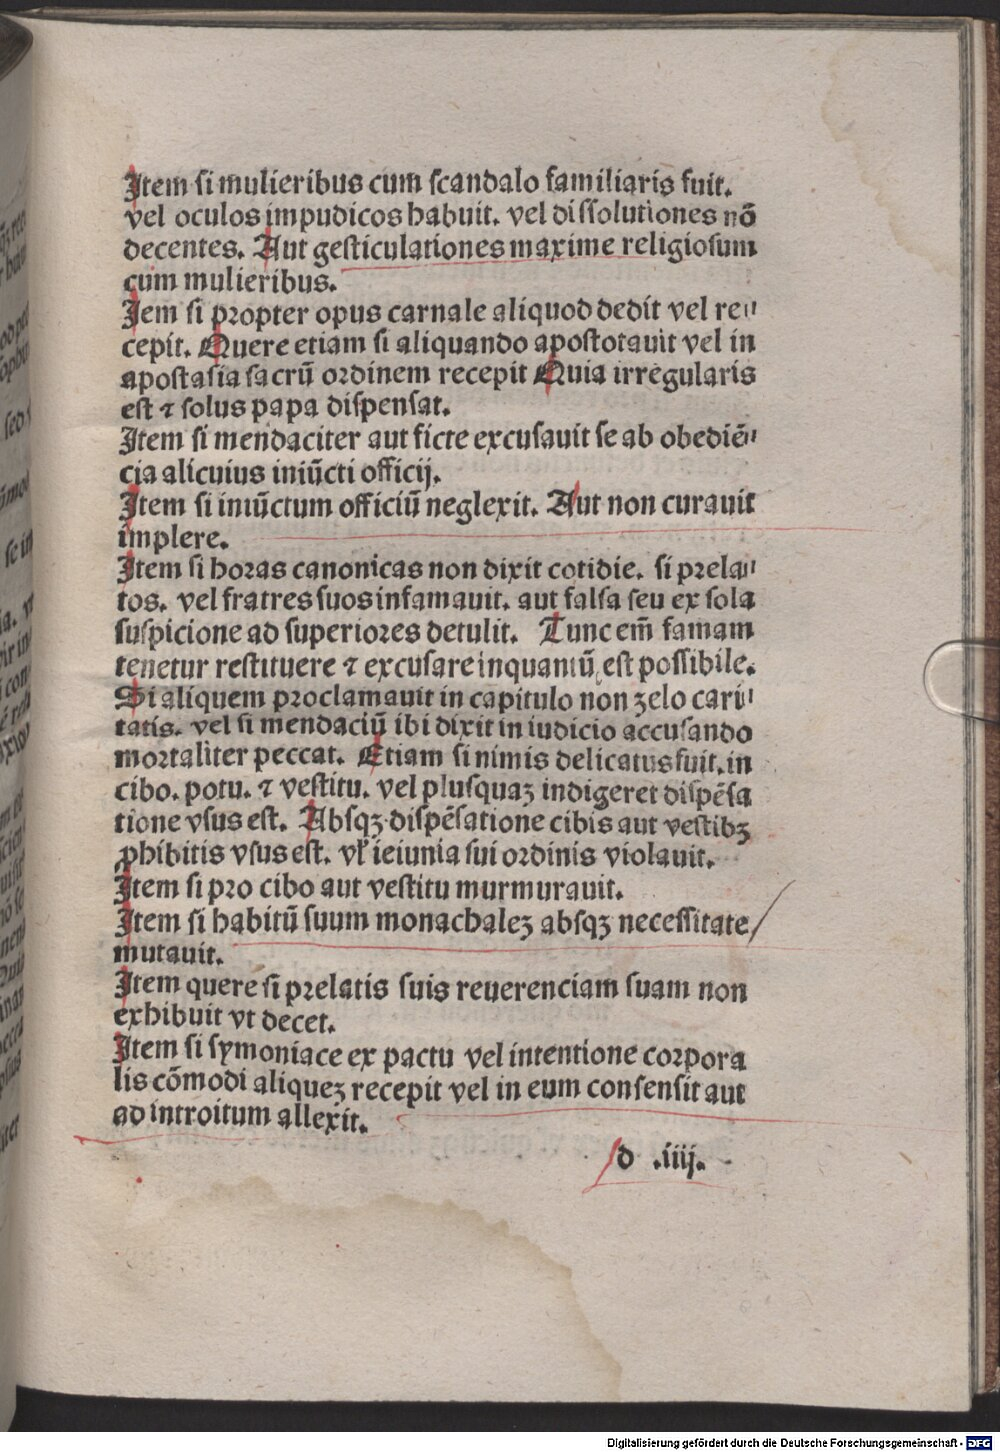 Item si mulieribus cum scandalo familiaris fuit.
vel oculos impudicos habuit. vel dissolutiones nō
decentes. Aut gesticulationes maxime religiosum
cum mulieribus.
Jem si propter opus carnale aliquod dedit vel re⸗
cepit. Quere etiam si aliquando apostotauit vel in
apostasia sacrū ordinem recepit Quia irregularis
est ⁊ solus papa dispensat.
Item si mendaciter aut ficte excusauit se ab obediē⸗
cia alicuius iniūcti officij.
Item si iniūctum officiū neglexit. Aut non curauit
implere.
Item si horas canonicas non dixit cotidie. si prela⸗
tos. vel fratres suos infamauit. aut falsa seu ex sola
suspicione ad superiores detulit. Tunc em̄ famam
tenetur restituere ⁊ excusare inquantū est possibile.
Si aliquem proclamauit in capitulo non zelo cari⸗
tatis. vel si mendaciū ibi dixit in iudicio accusando
mortaliter peccat. Etiam si nimis delicatus fuit. in
cibo. potu. ⁊ vestitu. vel plusquaꝫ indigeret dispēsa
tione vsus est. Absqꝫ dispēsatione cibis aut vestibꝫ
ꝓhibitis vsus est. vl̓ ieiunia sui ordinis violauit.
Item si pro cibo aut vestitu murmurauit.
Item si habitū suum monachaleꝫ absqꝫ necessitate
mutauit.
Item quere si prelatis suis reuerenciam suam non
exhibuit vt decet.
Item si symoniace ex pactu vel intentione corpora
lis cōmodi aliqueꝫ recepit vel in eum consensit aut
ad introitum allexit.
d .iiij.
Digitalisierung gefördert durch die Deutsche Forschungsgemeinschaft - DFG